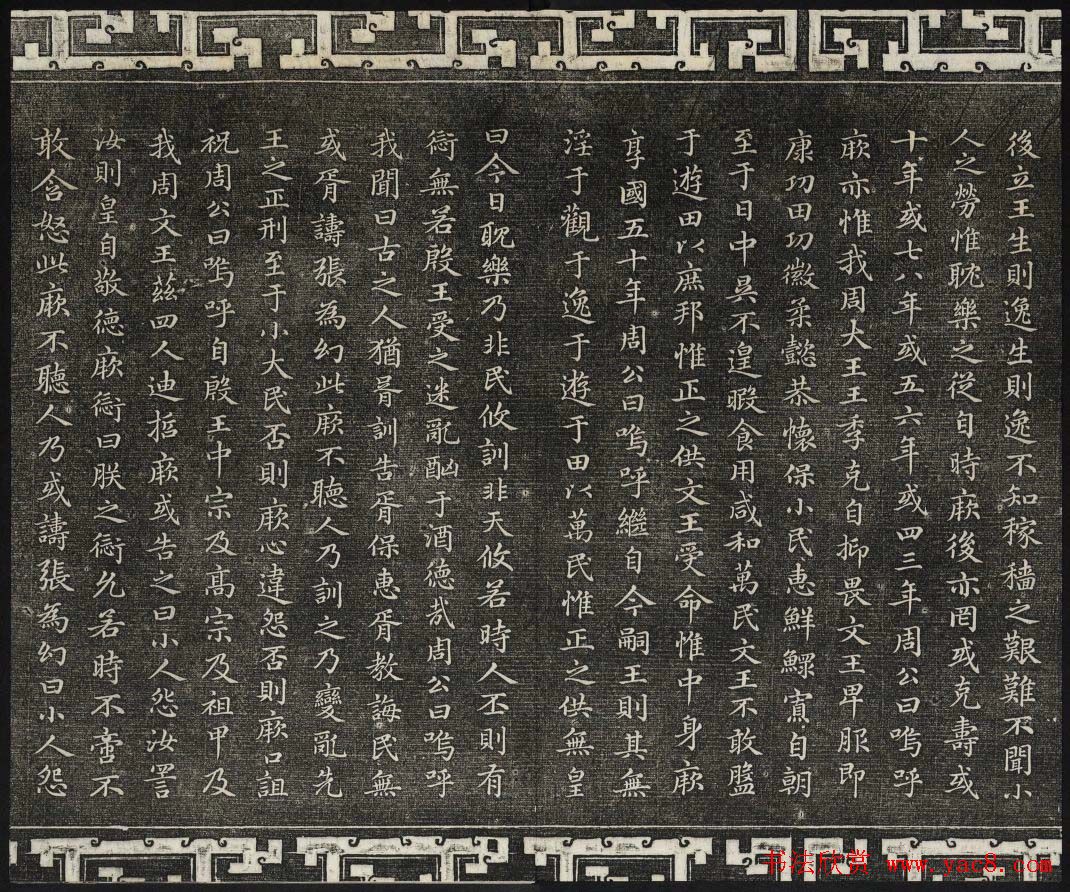 後立王生則逸生則逸不知稼穡之艱難不聞小
人之勞惟耽樂之從自時厥後亦罔或克壽或
十年或七八年或五六年或四三年周公曰嗚呼
厥亦惟我周大王王季克自抑畏文王卑服即
康功田功徽柔懿恭懷保小民惠鮮鰥寡自朝
至于日中昃不遑暇食用咸和萬民文王不敢盤
于遊田以庶邦惟正之供文王受命惟中身厥
享國五十年周公曰嗚呼繼自今嗣王則其無
淫于觀于逸于遊于田以萬民惟正之供無皇
曰今日耽樂乃非民攸訓非天攸若時人丕則有
愆無若殷王受之迷亂酗于酒德哉周公曰嗚呼
我聞曰古之人猶胥訓告胥保惠胥教誨民無
或胥譸張為幻此厥不聽人乃訓之乃變亂先
王之正刑至于小大民否則厥心違怨否則厥口詛
祝周公曰嗚呼自殷王中宗及高宗及祖甲及
我周文王茲四人迪哲厥或告之曰小人怨汝詈
汝則皇自敬德厥愆曰朕之愆允若時不啻不
敢含怒此厥不聽人乃或譸張為幻曰小人怨
书法欣赏 www.yac8.com